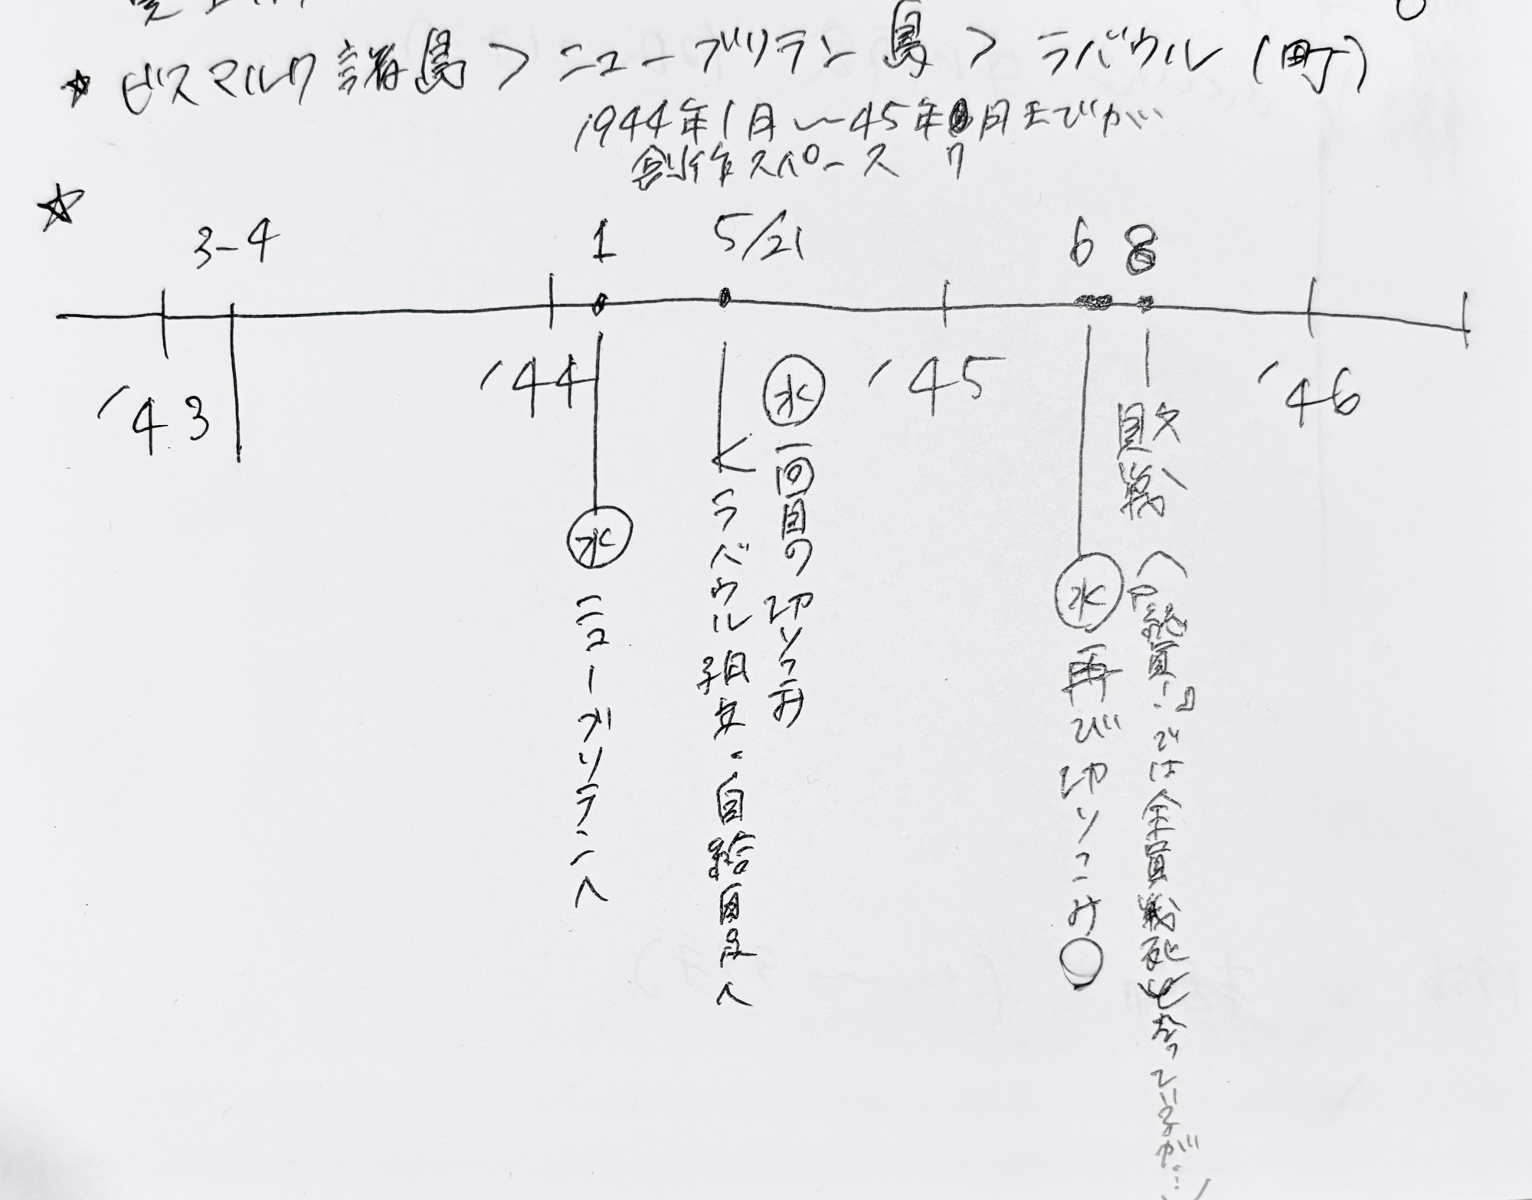 ★ ビスマルク諸島 > ニューブリテン島 > ラバウル (町)
1944年1月〜45年8月までが
7
創作スペース
☆
3-4
1
5/21
6
8
'43
'44
'45
'46
水 ニューブリテンへ
< ラバウル孤立・自給自足へ
水 一回目の切りこみ
水 再び切りこみ○
敗戦
(『総員!』では全員戦死となっているが…)